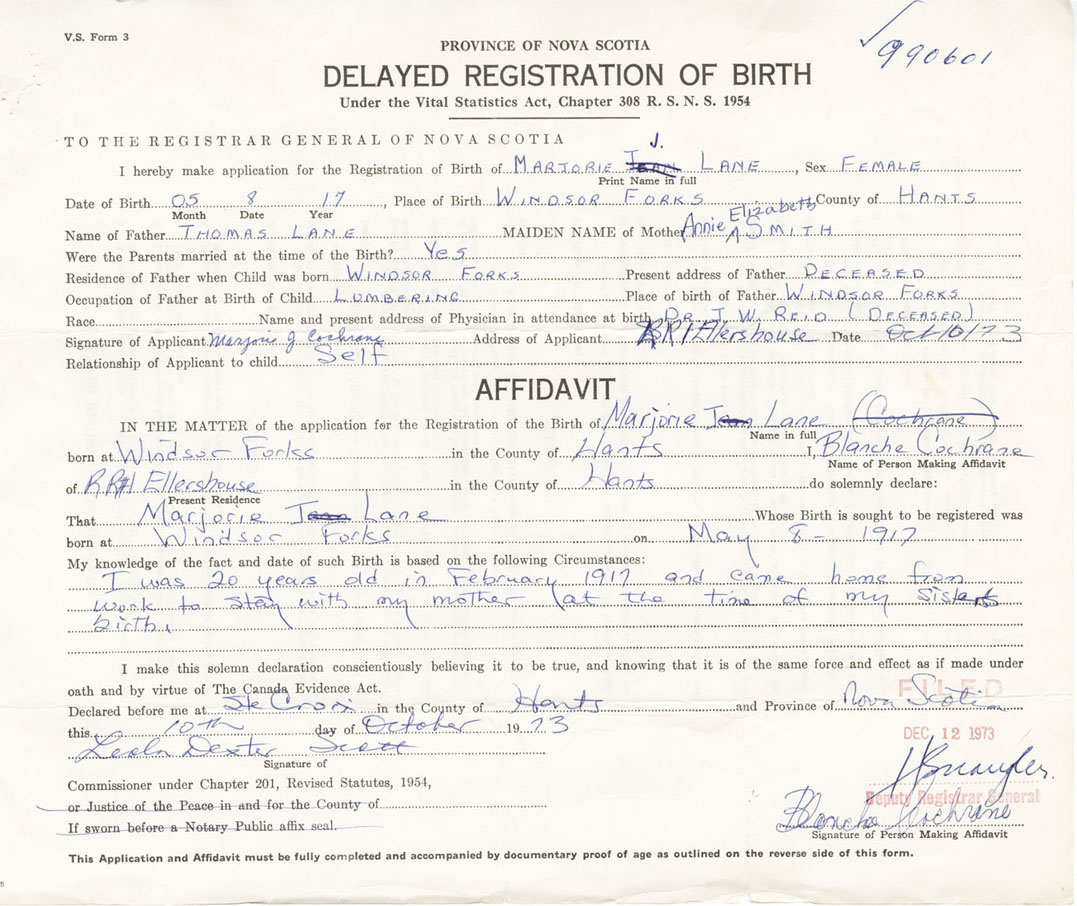 V.S. Form 3
✓990601
PROVINCE OF NOVA SCOTIA
DELAYED REGISTRATION OF BIRTH
Under the Vital Statistics Act, Chapter 308 R. S. N. S. 1954
TO THE REGISTRAR GENERAL OF NOVA SCOTIA
J.
I hereby make application for the Registration of Birth of MARJORIE JEAN LANE, Sex FEMALE
Print Name in full
Date of Birth 05 8 17, Place of Birth WINDSOR FORKS County of HANTS
Month Date Year
Name of Father THOMAS LANE MAIDEN NAME of Mother Annie Elizabeth SMITH
Were the Parents married at the time of the Birth? YES
Residence of Father when Child was born WINDSOR FORKS Present address of Father DECEASED
Occupation of Father at Birth of Child LUMBERING Place of birth of Father WINDSOR FORKS
Race Name and present address of Physician in attendance at birth DR. J. W. REID (DECEASED)
Signature of Applicant Marjorie J Cochrane Address of Applicant RR1 Ellershouse Date Oct 10/73
Relationship of Applicant to child Self
AFFIDAVIT
IN THE MATTER of the application for the Registration of the Birth of Marjorie Jean Lane (Cochrane)
Name in full
born at Windsor Forks in the County of Hants I, Blanche Cochrane
Name of Person Making Affidavit
of RR#1 Ellershouse in the County of Hants do solemnly declare:
Present Residence
That Marjorie Jean Lane Whose Birth is sought to be registered was
born at Windsor Forks on May 8 - 1917
My knowledge of the fact and date of such Birth is based on the following Circumstances:
I was 20 years old in February 1917 and came home from
work to stay with my mother (at the time of my sisters
birth.
I make this solemn declaration conscientiously believing it to be true, and knowing that it is of the same force and effect as if made under
oath and by virtue of The Canada Evidence Act.
FILED
Declared before me at Ste Croix in the County of Hants and Province of Nova Scotia
this 10th day of October 1973
DEC 12 1973
Dexter Scott
Signature of
Commissioner under Chapter 201, Revised Statutes, 1954,
Deputy Registrar General
or Justice of the Peace in and for the County of
Blanche Cochrane
If sworn before a Notary Public affix seal.
Signature of Person Making Affidavit
This Application and Affidavit must be fully completed and accompanied by documentary proof of age as outlined on the reverse side of this form.
5